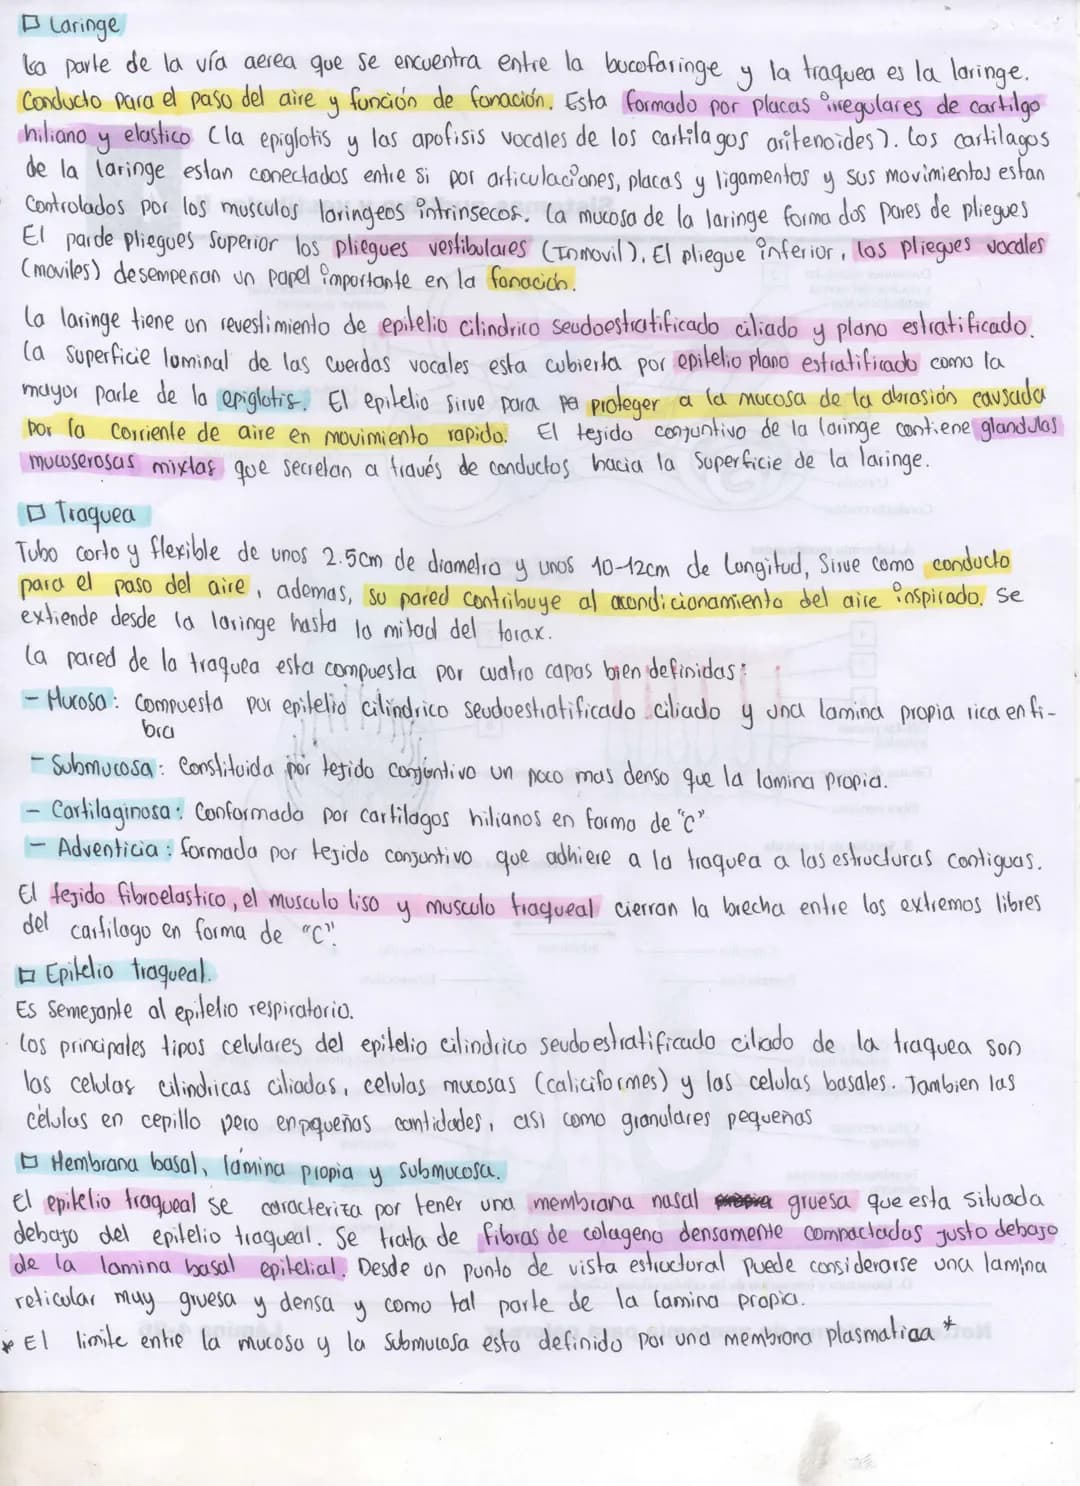 Laringe
La parte de la vía aerea que se encuentra entre la bucofaringe y la traquea es la laringe.
Conducto para el paso del aire y función de fonación. Esta formado por placas irregulares de cartilgo
hiliano y elastico (la epiglotis y las apofisis vocales de los cartilagos aritenoides). Los cartilagos
de la laringe estan conectados entre si por articulaciones, placas y ligamentos y sus movimientos estan
Controlados por los musculos laringeos intrinsecos. La mucosa de la laringe forma dos pares de pliegues
El par de pliegues superior los pliegues vestibulares (Inmovil). El pliegue inferior, los pliegues vocales
(moviles) desempeñan un papel importante en la fonación.
La laringe tiene un revestimiento de epitelio cilindrico seudoestratificado ciliado y plano estratificado.
La superficie luminal de las cuerdas vocales esta cubierta por epitelio plano estratificado como la
mayor parte de la epiglotis. El epitelio sirve para pa proteger a la mucosa de la abrasión causada
por la corriente de aire en movimiento rapido. El tejido conjuntivo de la laringe contiene glandulas
mucoserosas mixtas que secretan a través de conductos hacia la superficie de la laringe.
Traquea
Tubo corto y flexible de unos 2.5cm de diametro y unos 10-12cm de Longitud, Sirve como conducto
para el paso del aire, ademas, su pared contribuye al acondicionamiento del aire inspirado. Se
extiende desde la laringe hasta la mitad del torax.
La pared de la traquea esta compuesta por cuatro capas bien definidas:
- Mucosa: Compuesta por epitelio cilíndrico seudoestratificado ciliado y una lamina propia rica en fi-
bra
- Submucosa: Constituida por tejido conjuntivo un poco mas denso que la lamina propia.
- Cartilaginosa: Conformada por cartilagos hilianos en forma de "C"
- Adventicia: formada por tejido conjuntivo que adhiere a la traquea a las estructuras contiguas.
El tejido fibroelastico, el musculo liso y musculo traqueal cierran la brecha entre los extremos libres
del cartilago en forma de "C".
Epitelio traqueal.
Es semejante al epitelio respiratorio.
Los principales tipos celulares del epitelio cilindrico seudoestratificado ciliado de la traquea son
las celulas cilindricas ciliadas, celulas mucosas (caliciformes) y las celulas basales. Tambien las
células en cepillo pero en pqueñas cantidades, asi como granulares pequeñas
Membrana basal, lámina propia y submucosa.
El epitelio traqueal se caracteriza por tener una membrana nasal gruesa que esta situada
debajo del epitelio traqueal. Se trata de fibras de colageno densamente compactadas justo debajo
de la lamina basal epitelial. Desde un punto de vista estructural puede considerarse una lamina
reticular muy gruesa y densa y como tal parte de la lamina propia.
* El limite entre la mucosa y la submucosa esta definido por una membrana plasmatica *